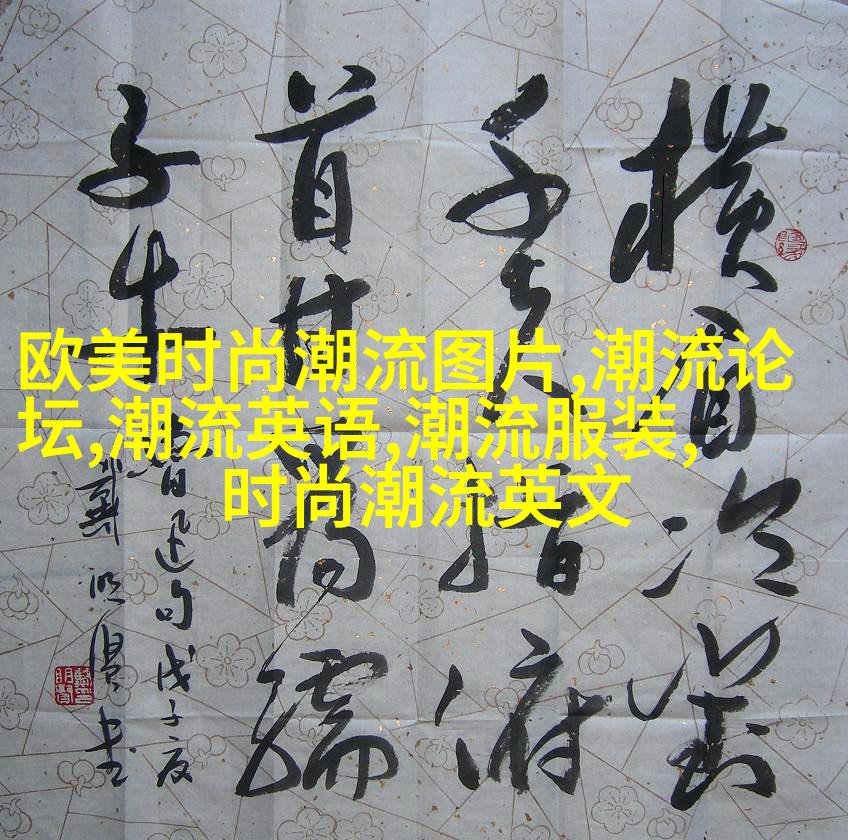 欧美时尚潮流图片,潮流论
坛,潮流英语,潮流服装,
时尚潮流英文
横眉冷對
千夫指俯
首甘為孺
子牛
魯迅句戊子夏